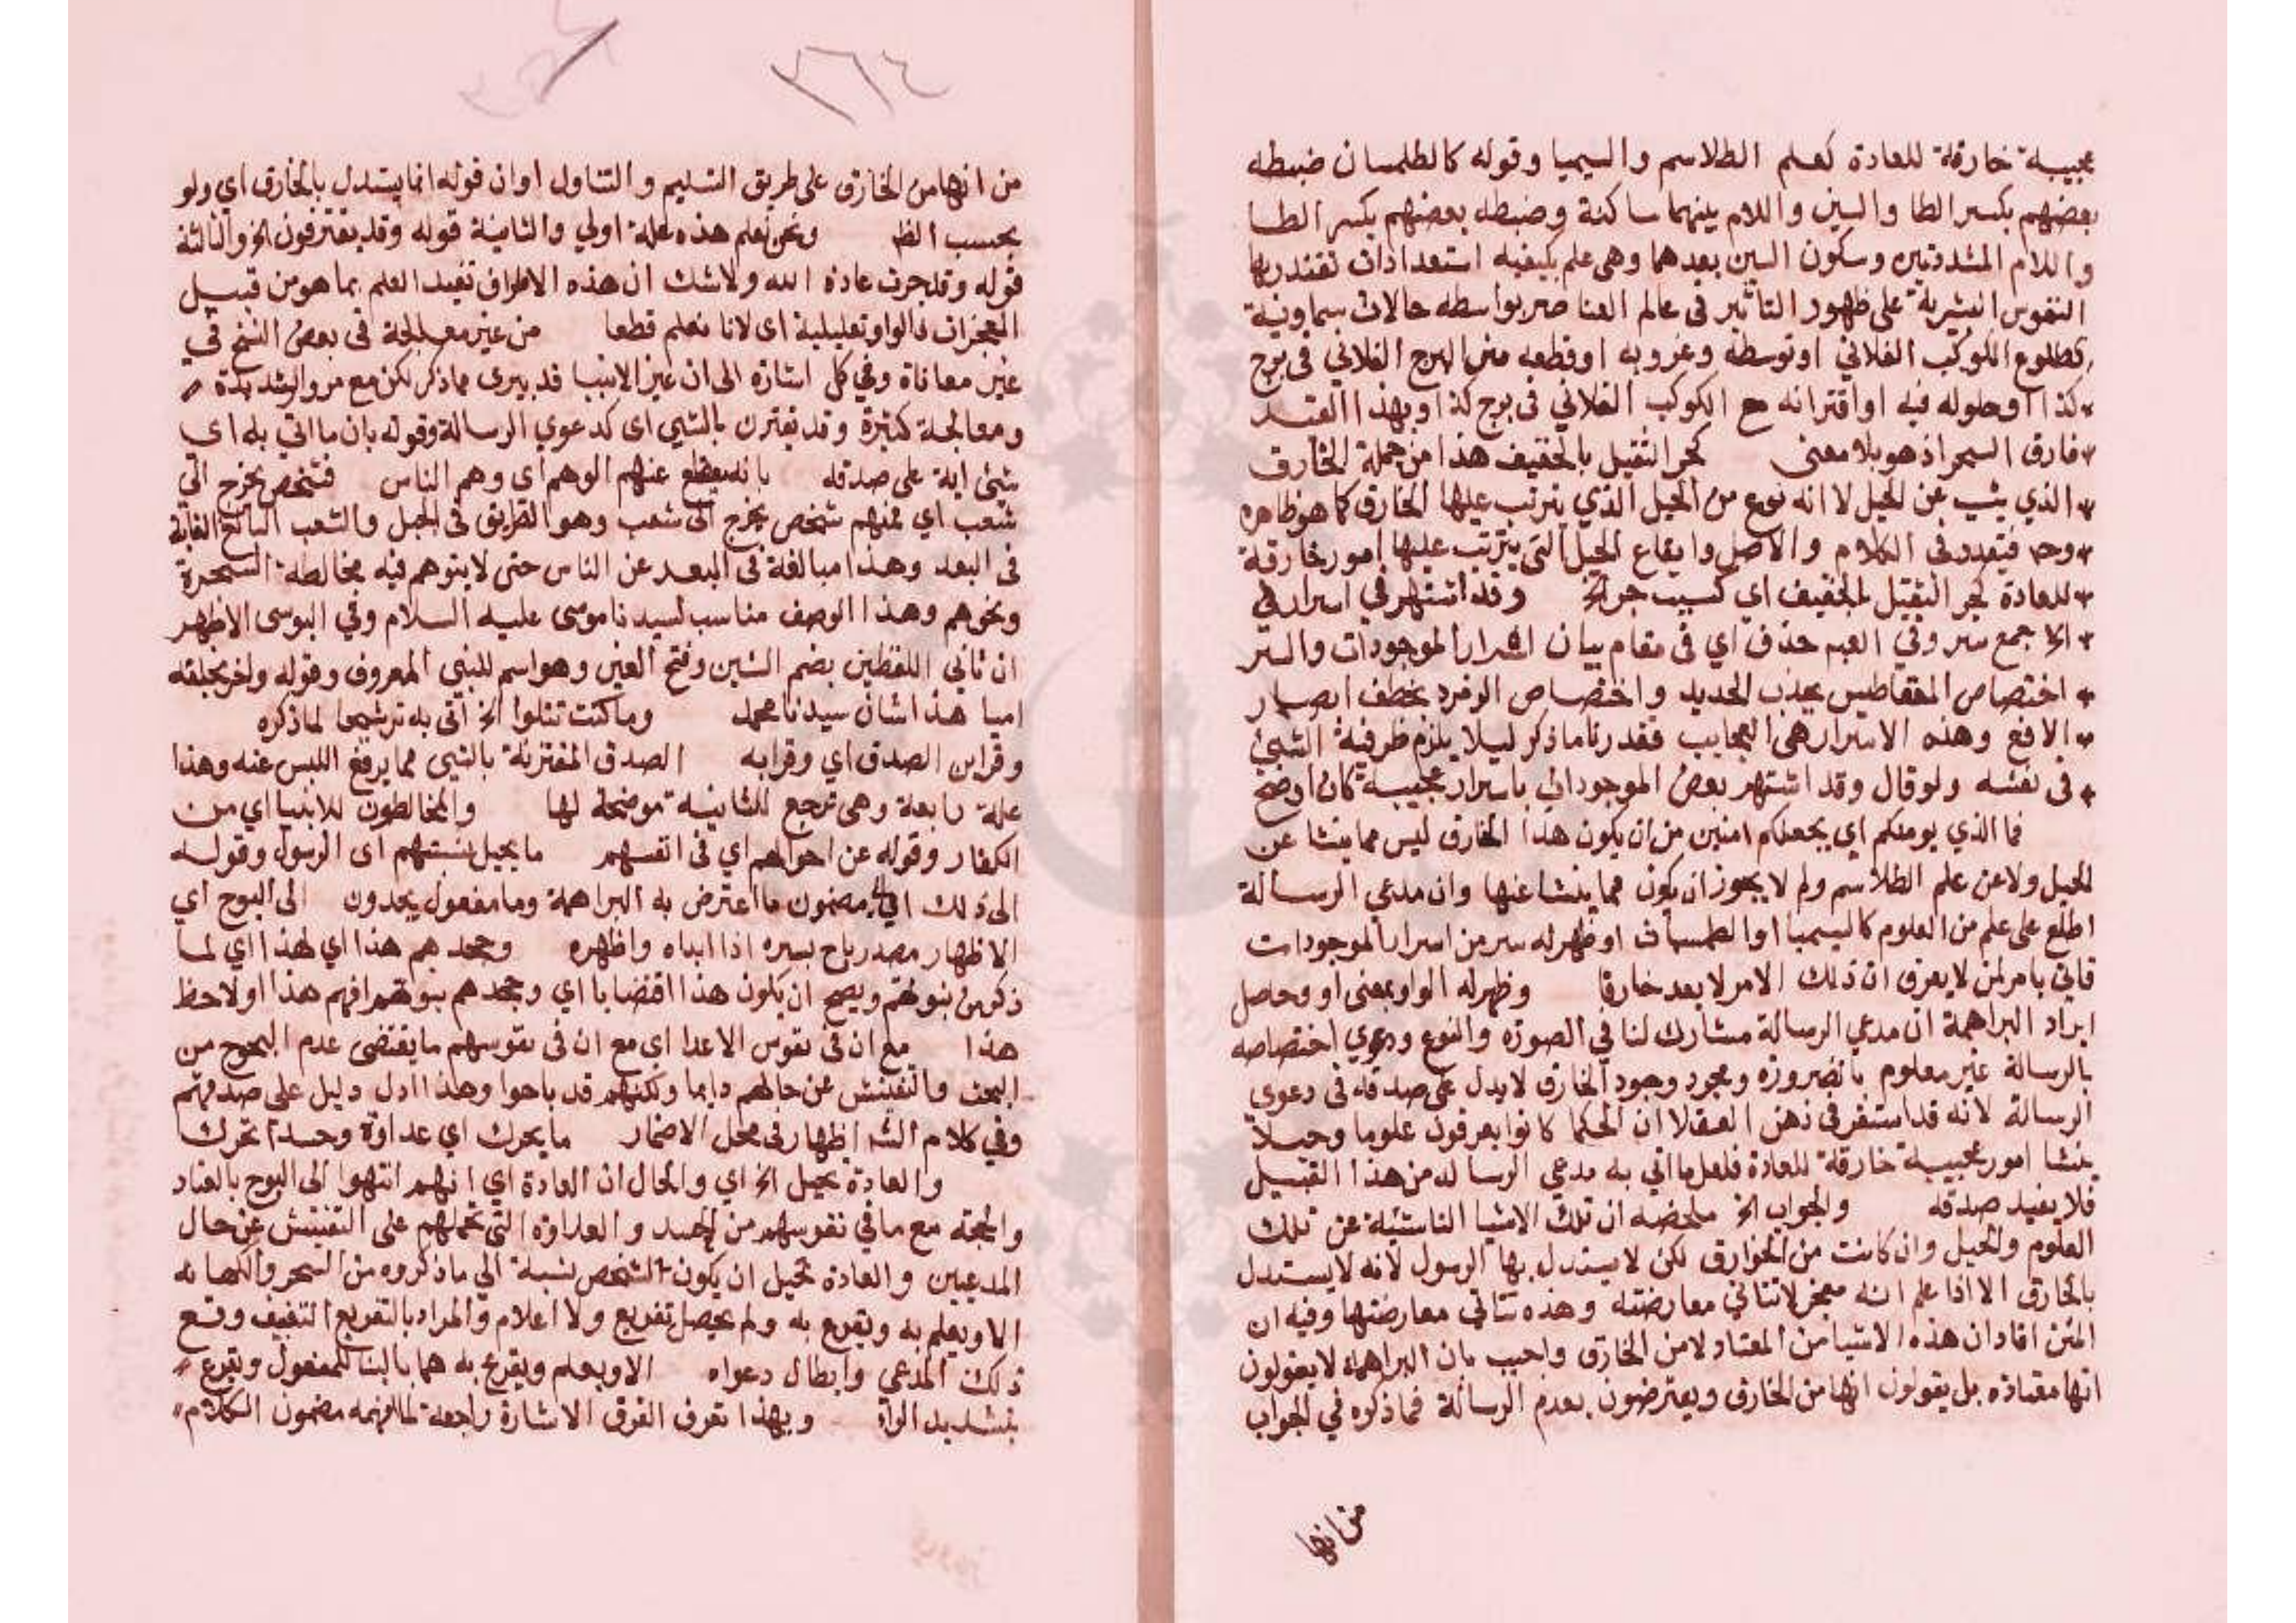 عجيبة خارقة للعادة كعلم الطلاسم والسيميا وقوله كالطلمسان ضبطه
بعضهم بكسر الطا والسين واللام بينهما ساكنة وضبطه بعضهم بكسر الطا
واللام المشددتين وسكون السين بعدهما وهى علم بكيفيه استعدادات تقتدر بها
النفوس البشرية على ظهور التأثير فى عالم العناصر بواسطه حالات سماوية
كطلوع الكوكب الفلاني اوتوسطه وغروبه اوقطعه من البرج الفلاني فى برج
كذا اوحلوله فيه اواقترانه مع الكوكب الفلاني فى برج كذا وبهذا القيد
فارق السحر اذ هو بلا معنى كجر الثقيل بالخفيف هذا من جملة الخارق
الذي ينشا عن الحيل لا انه نوع من الحيل الذي يترتب عليها الخارق كما هو ظاهره
وح فيقدر فى الكلام والاصل وايقاع الحيل التي يترتب عليها امور خارقة
للعادة كجر الثقيل بالخفيف اي كسبب جر الخ وقد اشتهر في اسرار في
الخ جمع سر وفي العبم حذف اي فى مقام بيان اسرار الموجودات والسر
اختصاص المقناطيس بجذب الحديد واختصاص الزمرد بخطف ابصار
الافع وهذه الاسرار هى العجايب فقدرنا ماذكر ليلا يلزم ظرفية الشيئ
فى نفسه ولو قال وقد اشتهر بعض الموجودات باسرار عجيبة كان اوضح
فما الذي يومنكم اي يجعلكم امنين من ان يكون هذا الخارق ليس مما ينشا عن
الحيل ولاعن علم الطلاسم ولم لا يجوز ان يكون مما ينشا عنها وان مدعي الرسالة
اطلع على علم من العلوم كالسيميا او الطلمسات او ظهر له سر من اسرار الموجودات
فاتي بامر لمن لا يعرف ان ذلك الامر لا يعد خارقا وظهر له الواو بمعنى او وحاصل
ايراد البراهمة ان مدعي الرسالة مشارك لنا في الصورة والنوع ودعوي اختصاصه
بالرسالة غير معلوم بالضرورة ومجرد وجود الخارق لا يدل على صدقه فى دعوى
الرسالة لانه قد استقر فى ذهن العقلا ان الحكما كانوا يعرفون علوما وحيلا
ينشا امور عجيبة خارقة للعادة فلعل ما اتي به مدعي الرسالة من هذا القبيل
فلا يفيد صدقه والجواب الخ ملخصه ان تلك الاشيا الناشئة عن تلك
العلوم والحيل وان كانت من الخوارق لكن لا يستدل بها الرسول لانه لا يستدل
بالخارق الا اذا علم انه معجز لا تتاتي معارضته وهذه تتاتي معارضتها وفيه ان
المتن افاد ان هذه الاشيا من المعتاد لا من الخارق واجيب بان البراهمة لا يقولون
انها معتاده بل يقولون انها من الخارق ويعترضون بعدم الرسالة فما ذكره في الجواب
من انها
٢٦٤
من انها من الخارق على طريق التسليم والتناول او ان قوله انما يستدل بالخارق اي ولو
بحسب الظ ونحن نعلم هذه علة اولي والثانية قوله وقد يقترفون الخ والثالثة
قوله وقد جرت عادة الله ولا شك ان هذه الاطراف تفيد العلم بما هو من قبيل
المعجزات فالواو تعليلية اى لانا نعلم قطعا من غير معالجة فى بعض النسخ في
غير معاناة وفي كل اشارة الى ان غير الانبيا قد يبرى مما ذكر لكن مع مرور الشديدة
ومعالجة كثيرة وقد تقترن بالشيي اى كدعوي الرسالة وقوله بان ما اتي به اى
شيئ اية على صدقه بانه يقطع عنهم الوهم اى وهم الناس فشخص يخرج الي
شعب اي فمنهم شخص يخرج الى شعب وهو الطريق فى الجبل والشعب البالغ الغاية
فى البعد وهذا مبالغة فى البعد عن الناس حتى لا يتوهم فيه مخالطة السحرة
ونحوهم وهذا الوصف مناسب لسيدنا موسى عليه السلام وفي اليوسى الاظهر
ان ثاني اللفظين بضم الشين وفتح العين وهو اسم للنبي المعروف وقوله واخر يخلقه
اميا هذا شان سيدنا محمد وما كنت تتلوا الخ اتى به ترشيحا لما ذكره
وقراين الصدق اي وقرابه الصدق المقترنة بالنبى مما يرفع اللبس عنه وهذا
علة رابعة وهى ترجع للثانية موضحة لها والمخالطون للانبيا اي من
الكفار وقوله عن احوالهم اي فى انفسهم ما يحيل نسبتهم اى الرسول وقوله
الى ذلك اي مضمون ما اعترض به البراهمة وما مفعول يجدون الى البوح اي
الاظهار مصدر باح بسره اذا ابداه واظهره وجحدهم هذا اي لهذا اي لما
ذكر من نبوتهم ويصح ان يكون هذا اقتضابا اي وجحدهم نبوتهم افهم هذا او لاحظ
هذا مع ان فى نفوس الاعدا اى مع ان فى نفوسهم ما يقتضى عدم البحوح من
البحث والتفتيش عن حالهم دايما ولكنهم قد باحوا وهذا ادل دليل على صدقهم
وفي كلام الشه اظهار فى محل الاضمار ما يحرك اي عداوة وحسدا تحرك
والعادة تحيل الخ اي والحال ان العادة اي انهم انتهوا الى البوح بالعناد
والحجه مع ما في نفوسهم من الحسد والعداوة التي تحملهم على التفتيش عن حال
المدعيين والعادة تحيل ان يكون الشخص نسبة الي ما ذكروه من السحر والكهانه
الا ويعلم به ويقرع به ولم يحصل تقريع ولا اعلام والمراد بالتقريع التعنيف وقع
ذلك المدعي وابطال دعواه الا ويعلم ويقرع به هما بالبنا للمفعول ويقرع
بتشديد الراء وبهذا تعرف الفرق الاشارة راجعة لما افهمه مضمون الكلام